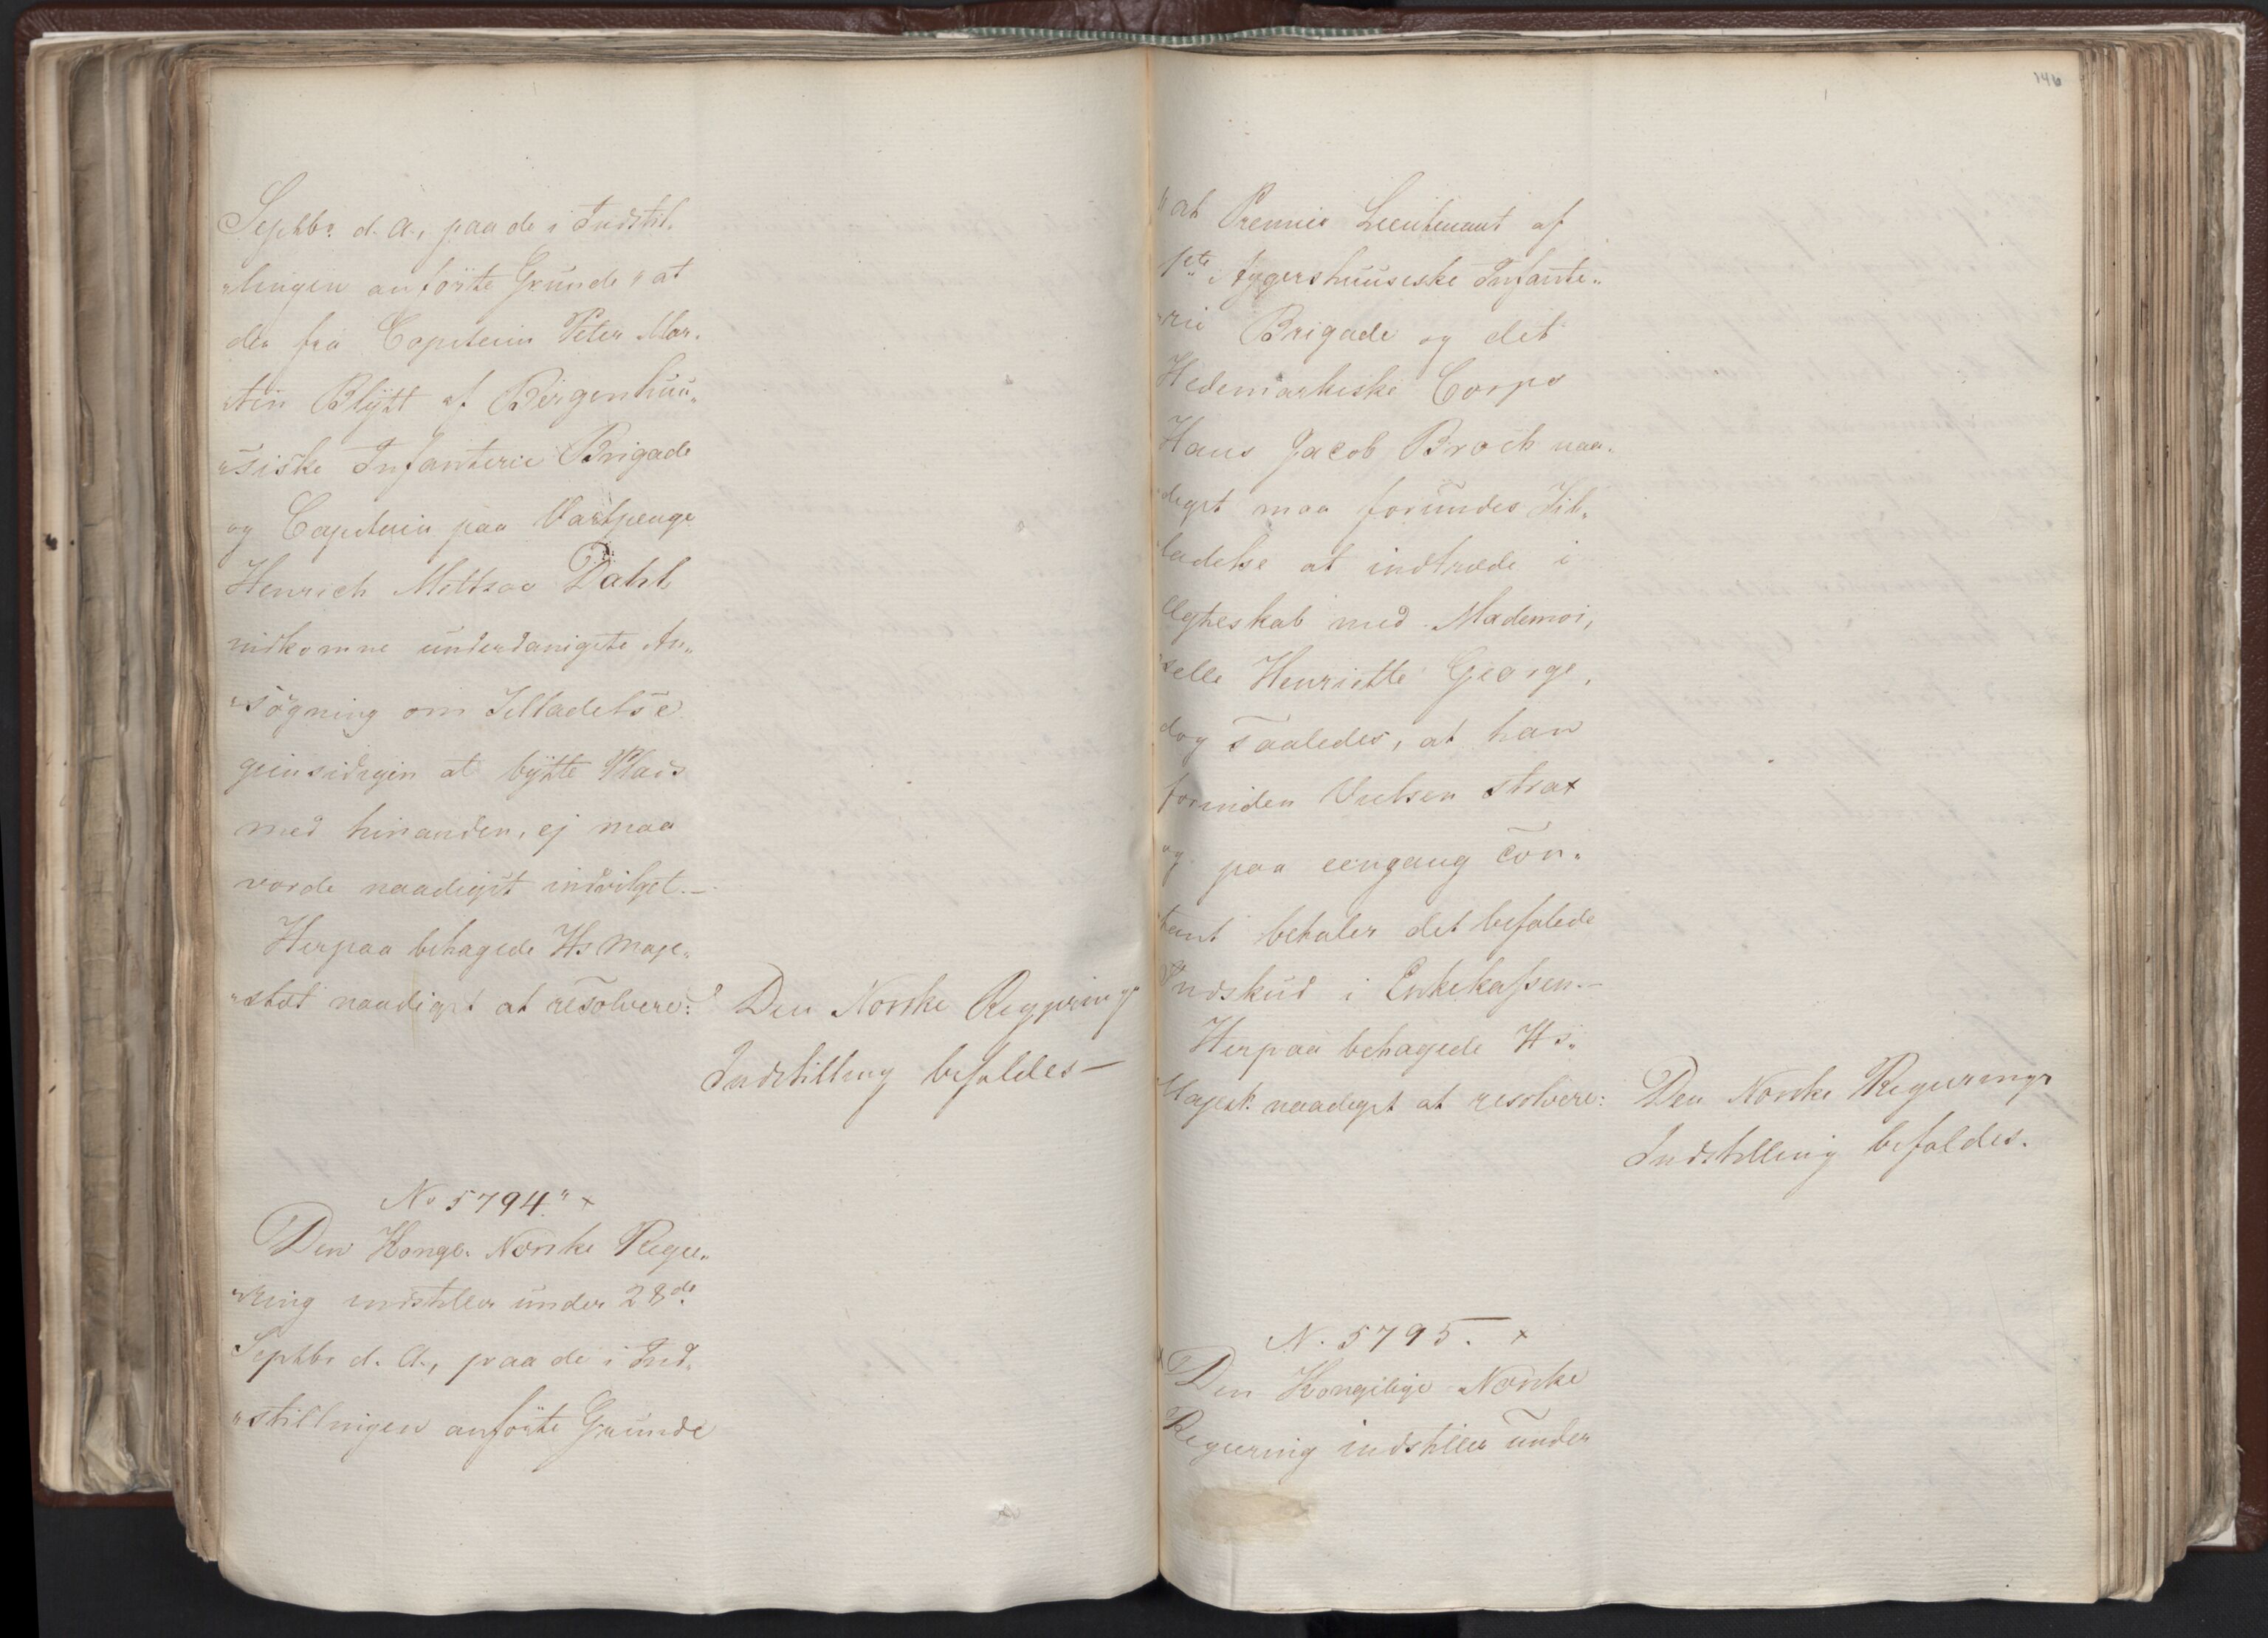 Septbr. d. A., paa de i Indstil„
„lingen anförte Grunde „at
den fra Capitain Peter Mar„
„tin Blÿtt af Bergenhuu„
„siske Infanterie Brigade
og Capitain paa Vartpenge
Henrich Meltzar Dahl
indkomne underdanigste An„
„sögning om Tilladelse
gjensidigen at bÿtte Plads
med hinanden, ej maa
vorde naadigst indvilget.—
Herpaa behagede Hs Maje„
„stæt naadigst at resolvere:
Den Norske Regjerings
Indstilling befaldes—
No 5794." x
Den Kongl. Norske Regje„
„ring indstiller under 28de
Septbr d. A., paa de i Ind„
„stillingen anförte Grunde
146
„at Premier Lieutenant af
1ste Aggershuusiske Infante„
„rie Brigade og det
Hedemarkiske Corps
Hans Jacob Broch naa„
„digst maa forundes Til„
„ladelse at indtræde i
Ægteskab med Mademoi„
„selle Henriette George,
dog saaledes, at han
forinden Vielsen strax
og paa eengang con„
„tant betaler det befalede
Indskud i Enkekassen.—
Herpaa behagede Hs.
Majest. naadigst at resolvere:
Den Norske Regjerings
Indstilling befaldes.
N. 5795. x
Den Kongelige Norske
Regjering indstiller under